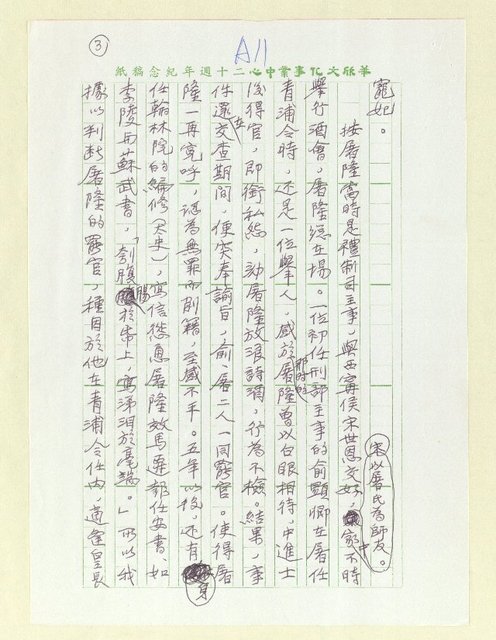 ③
A11
華欣文化事業中心二十週年紀念稿紙
寵妃。
按屠隆當時是禮制司主事,與西寧侯宋世恩交好,宋以屠氏為師友。家中不時
舉行酒會,屠隆總在場。一位初任刑部主事的俞顯卿在屠任
青浦令時,還是一位舉人,感於屠隆那時曾以白眼相待,中進士
後得官,即銜私怨,劾屠隆放浪詩酒,行為不檢。結果,事
件還在交查期間,便突奉諭旨,俞、屠二人一同罷官。使得屠
隆一再寃呼,認為無罪而削籍,至感不平。五年以後,還有身
任翰林院的編修(太史),寫信慫恿屠隆效馬遷報任安書,如
李陵與蘇武書,「刳腹腸於帋上,寄涕泪於毫端。」所以我
據以判斷屠隆的罷官,種因於他在青浦令任內,適逢皇長